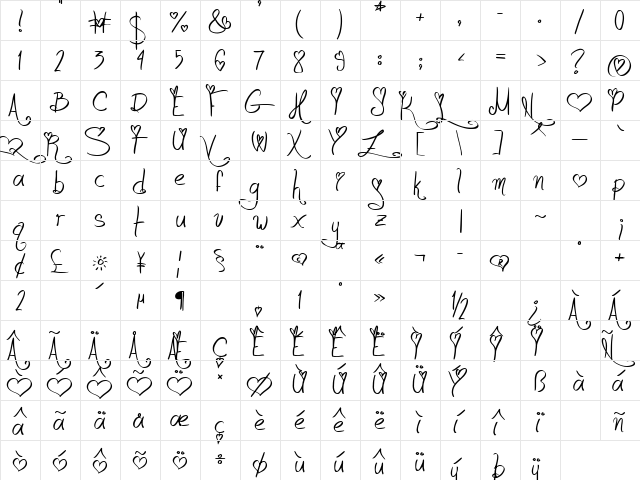 ! # $ % & ' ( ) * + , - . / 0
1 2 3 4 5 6 7 8 9 : ; < = > ? @
A B C D E F G H I J K L M N O P
Q R S T U V W X Y Z [ \ ] ^ _ `
a b c d e f g h i j k l m n o p
q r s t u v w x y z | ~ ¡
¢ £ ¤ ¥ ¦ § ¨ © ª « ¬ ¯ ® ° +
2 ´ µ ¶ ¸ 1 º » 1/2 ¿ À Á
 à Ä Å Æ Ç È É Ê Ë Ì Í Î Ï Ñ
Ò Ó Ô Õ Ö × Ø Ù Ú Û Ü Ý ß à á
â ã ä å æ ç è é ê ë ì í î ï ñ
ò ó ô õ ö ÷ ø ù ú û ü ý þ ÿ